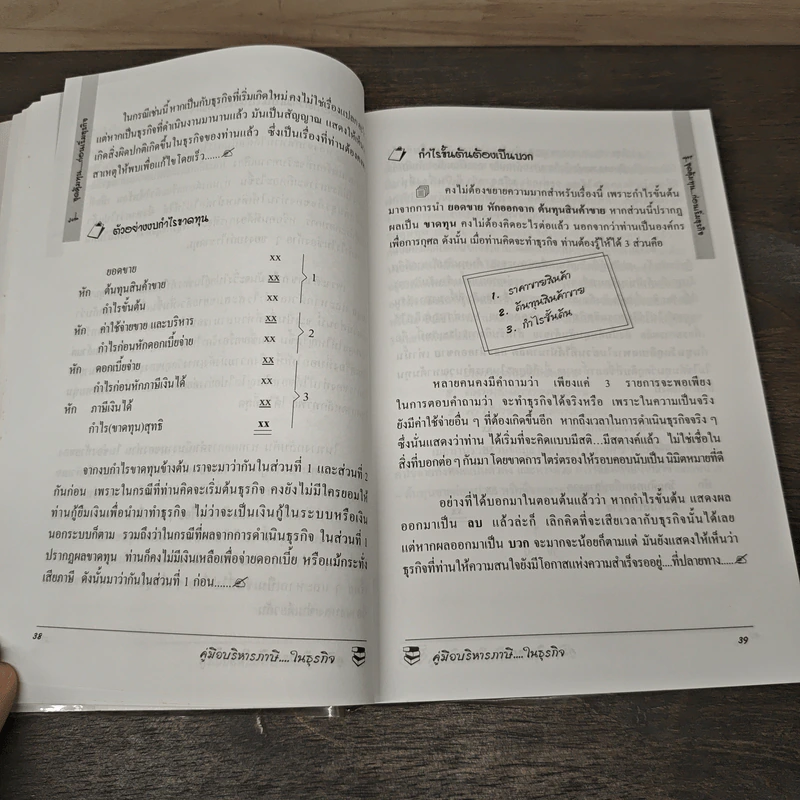 ในกรณีเช่นนี้ หากเป็นกับธุรกิจที่เริ่มเกิดใหม่ คงไม่ใช่เรื่องแปลก
แต่หากเป็นธุรกิจที่ดำเนินงานมานานแล้ว มันเป็นสัญญาณ แสดงให้
เกิดสิ่งผิดปกติเกิดขึ้นในธุรกิจของท่านแล้ว ซึ่งเป็นเรื่องที่ท่านต้อง
สาเหตุให้พบเพื่อแก้ไขโดยเร็ว......
ตัวอย่างงบกำไรขาดทุน
ยอดขาย xx
หัก ต้นทุนสินค้าขาย xx 1
กำไรขั้นต้น xx
หัก ค่าใช้จ่ายขาย และบริหาร xx
กำไรก่อนหักดอกเบี้ยจ่าย xx 2
หัก ดอกเบี้ยจ่าย xx
กำไรก่อนหักภาษีเงินได้ xx
หัก ภาษีเงินได้ xx 3
กำไร(ขาดทุน)สุทธิ xx
จากงบกำไรขาดทุนข้างต้น เราจะมาว่ากันในส่วนที่ 1 และส่วนที่ 2
กันก่อน เพราะในกรณีที่ท่านคิดจะเริ่มต้นธุรกิจ คงยังไม่มีใครยอมให้
ท่านกู้ยืมเงินเพื่อนำมาทำธุรกิจ ไม่ว่าจะเป็นเงินกู้ในระบบหรือเงิน
นอกระบบก็ตาม รวมถึงว่าในกรณีที่ผลจากการดำเนินธุรกิจ ในส่วนที่ 1
ปรากฏผลขาดทุน ท่านก็คงไม่มีเงินเหลือเพื่อจ่ายดอกเบี้ย หรือแม้กระทั่ง
เสียภาษี ดังนั้นมาว่ากันในส่วนที่ 1 ก่อน......
38
คู่มือบริหารภาษี....ในธุรกิจ
รู้ จุดคุ้มทุน ก่อนเริ่มธุรกิจ
กำไรขั้นต้นต้องเป็นบวก
คงไม่ต้องขยายความมากสำหรับเรื่องนี้ เพราะกำไรขั้นต้น
มาจากการนำ ยอดขาย หักออกจาก ต้นทุนสินค้าขาย หากส่วนนี้ปรากฏ
ผลเป็น ขาดทุน คงไม่ต้องคิดอะไรต่อแล้ว นอกจากว่าท่านเป็นองค์กร
เพื่อการกุศล ดังนั้น เมื่อท่านคิดจะทำธุรกิจ ท่านต้องรู้ให้ได้ 3 ส่วนคือ
1. ราคาขายสินค้า
2. ต้นทุนสินค้าขาย
3. กำไรขั้นต้น
หลายคนคงมีคำถามว่า เพียงแค่ 3 รายการจะพอเพียง
ในการตอบคำถามว่า จะทำธุรกิจได้จริงหรือ เพราะในความเป็นจริง
ยังมีค่าใช้จ่ายอื่น ๆ ที่ต้องเกิดขึ้นอีก หากถึงเวลาในการดำเนินธุรกิจจริง ๆ
ซึ่งนั่นแสดงว่าท่าน ได้เริ่มที่จะคิดแบบมีสติ...มีสตางค์แล้ว ไม่ใช่เชื่อใน
สิ่งที่บอกต่อ ๆ กันมา โดยขาดการไตร่ตรองให้รอบคอบนับเป็น นิมิตหมายที่ดี
อย่างที่ได้บอกมาในตอนต้นแล้วว่า หากกำไรขั้นต้น แสดงผล
ออกมาเป็น ลบ แล้วล่ะก็ เลิกคิดที่จะเสียเวลากับธุรกิจนั้นได้เลย
แต่หากผลออกมาเป็น บวก จะมากจะน้อยก็ตามแต่ มันยังแสดงให้เห็นว่า
ธุรกิจที่ท่านให้ความสนใจยังมีโอกาสแห่งความสำเร็จรออยู่....ที่ปลายทาง.....
39
คู่มือบริหารภาษี....ในธุรกิจ